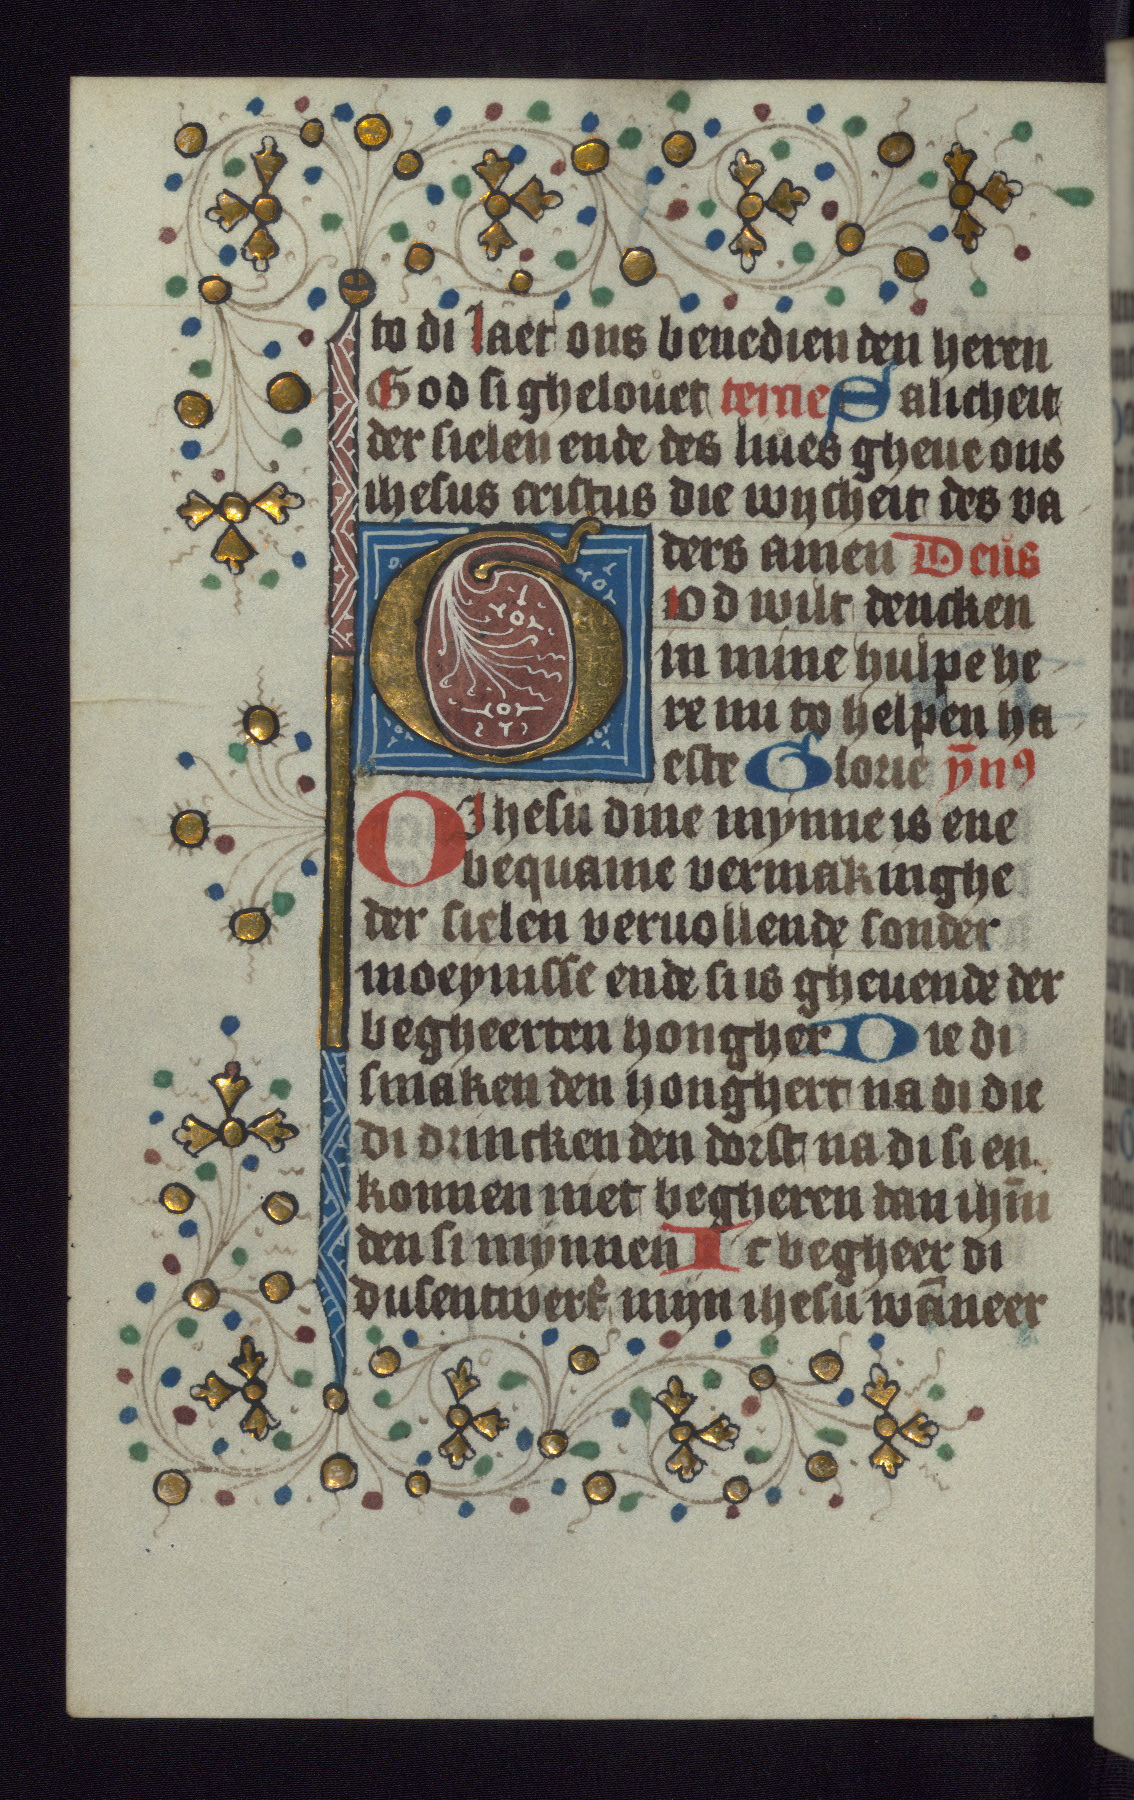 to di Laet ons benedien den heren
God si ghelouet terne Salicheit
der sielen ende des liues gheue ons
ihesus cristus die wijsheit des va
ders amen Deus
God wilt dencken
in mine hulpe he
re mi to helpen ha
este Glorie ȳnꝰ
O Ihesu dine mynne is ene
bequame vermakinghe
der sielen veruollende sonder
moeynisse ende si is gheuende der
begheerten hongher Die di
smaken den honghert na di die
di drincken den dorst na di si en
konnen niet begheren dan ihm̄
den si mynnen Ic begheer di
dusentwerf mijn ihesu wāneer